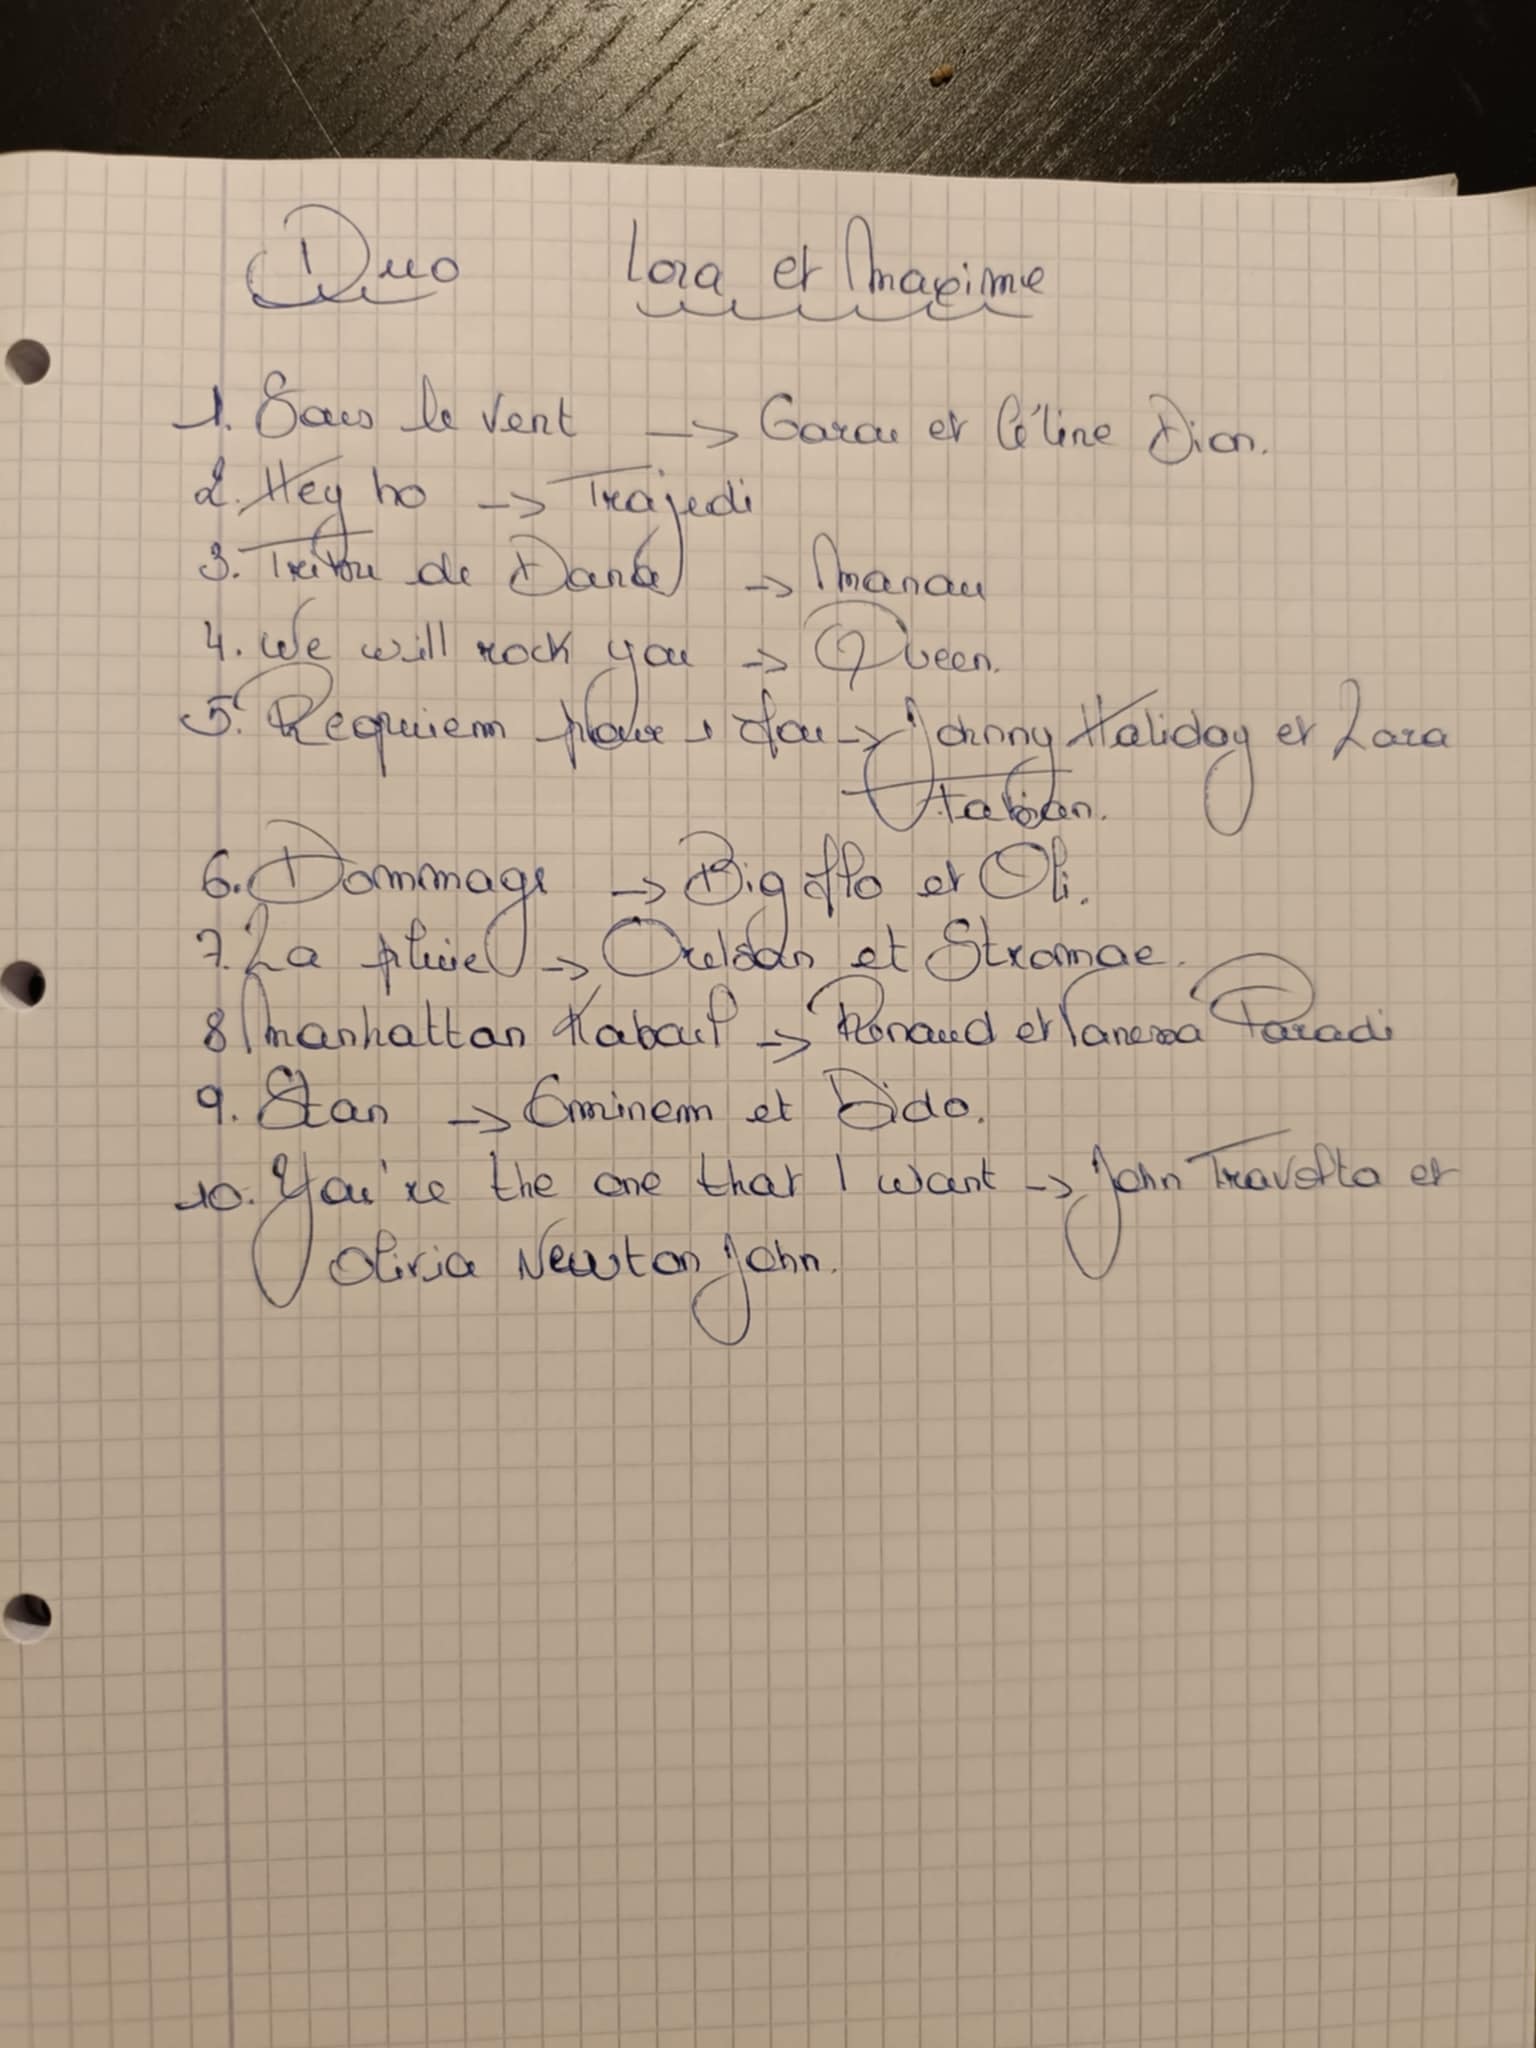 Duo Lora et Maxime
1. Sous le vent -> Garou et Céline Dion.
2. Hey ho -> Trajedi
3. Tribu de Dana -> Manau
4. We will rock you -> Queen.
5. Requiem pour 1 fou -> Johnny Haliday et Lara
Fabian.
6. Dommage -> Big flo et Oli.
7. La pluie -> Orelsan et Stromae.
8 Manhattan Kaboul -> Renaud et Vanessa Paradi
9. Stan -> Eminem et Dido.
10. You're the one that I want -> John Travolta et
Olivia Newton John.